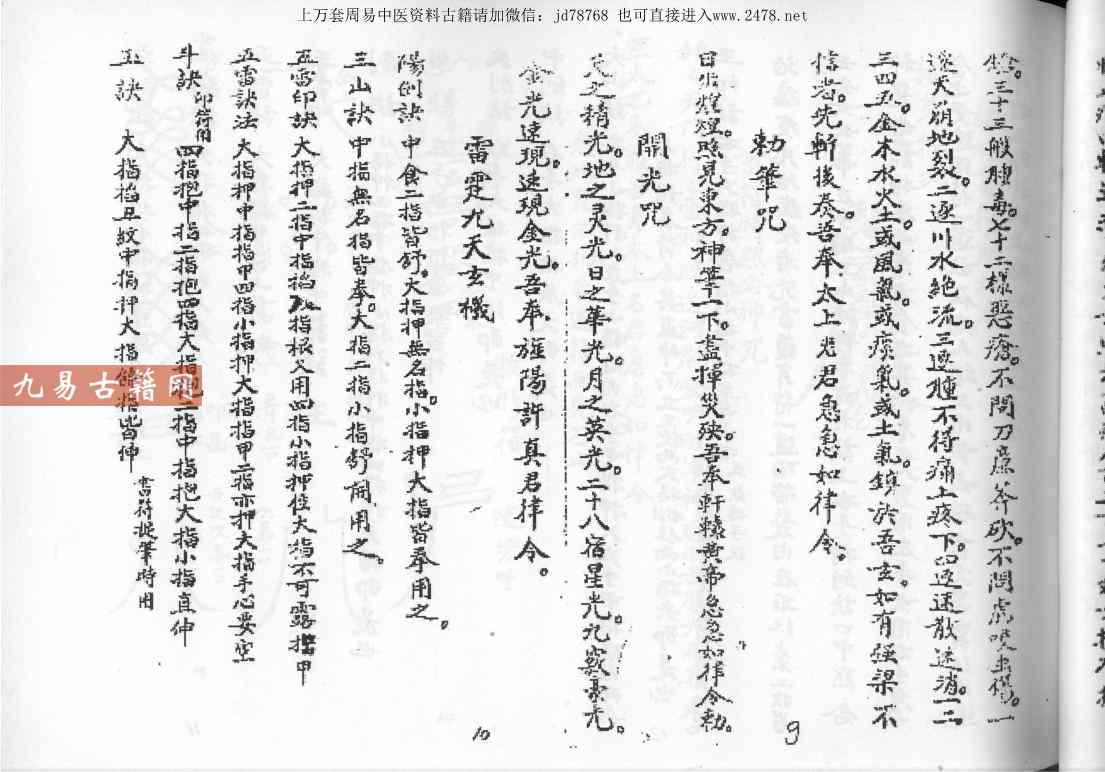 上万套周易中医资料古籍请加微信：jd78768 也可直接进入www.2478.net
三十三般腫毒。七十二樣惡瘡。不問刀 斧砍。不問虎咬 傷。一
逐天崩地裂。二逐川水絕流。三逐腫不得痛上疼下。四逐速散速消。一二
三四五。金木水火土。或風氣。或痰氣。或土氣。鎮於吾玄。如有强梁不
信者。先斬後奏。吾奉太上老君急急如律令。
勅筆咒
日出煌煌。照見東方。神筆一下。盡掃災殃。吾奉軒轅黄帝急急如律令勅。
開光咒
天之精光。地之灵光。日之華光。月之英光。二十八宿星光。九竅豪光。
金光速現。速現金光。吾奉旌陽許真君律令。
雷霆九天玄機
陽刽訣 中食二指皆舒。大指押無名指。小指押大指皆拳用之。
三山訣 中指無名指皆拳。大指二指小指舒開用之。
五雷印訣 大指押二指中指掐 指根又用四指小指押住大指不可露指甲
五雷訣法 大指押中指指甲四指小指押大指指甲二指亦押大指手心要空
斗訣 印符用 四指抱中指二指抱四指大指抱二指中指抱大指小指直伸
玉訣 大指掐丑紋中指押大指餘指皆伸 書符捉筆時用
九易古籍网
9
10